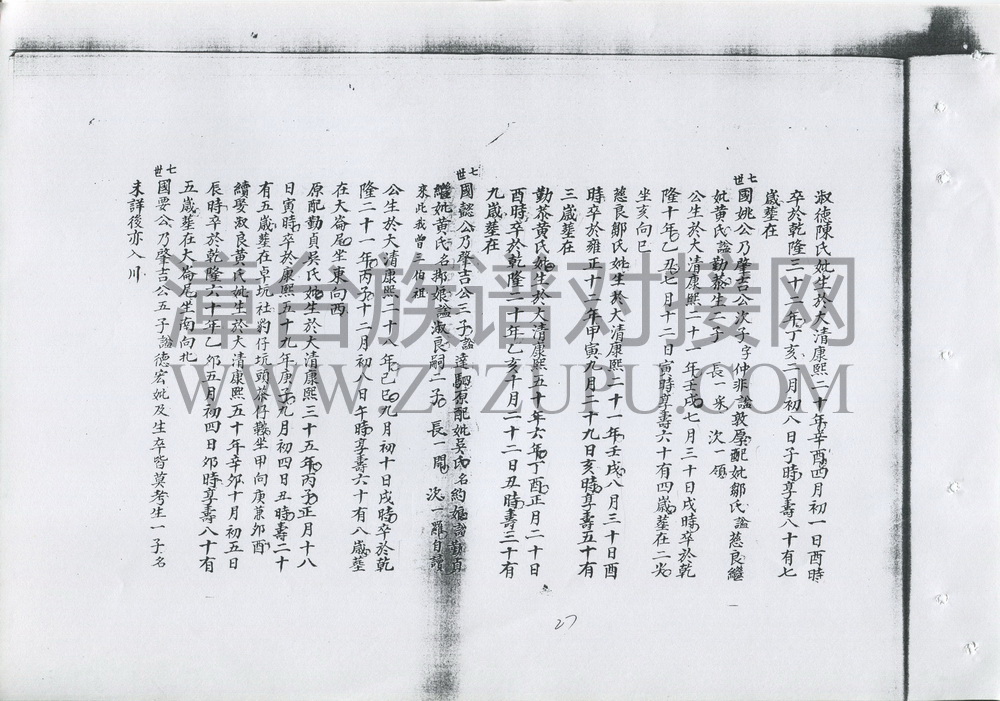 淑德陳氏妣生於大清康熙二十年辛酉四月初一日酉時
卒於乾隆三十二年丁亥二月初八日子時享壽八十有七
歲塟在
七世
國姚公乃肇吉公次子字仲非謚敦厚配妣鄒氏謚慈良繼
妣黃氏謚勤慈生二子 長一采 次一領
公生於大清康熙二十一年壬戌七月三十日戌時卒於乾
隆十年乙丑七月十二日寅時享壽六十有四歲塟在二尖
坐亥向巳
慈良鄒氏妣生於大清康熙二十一年壬戌八月三十日酉
時卒於雍正十二年甲寅九月二十九日亥時享壽五十有
三歲塟在
勤慈黃氏妣生於大清康熙五十年六年丁酉正月二十日
酉時卒於乾隆二十年乙亥十月二十二日丑時壽三十有
九歲塟在
七世
國懿公乃肇吉公三子謚達 原配妣吳氏名約娘謚勤貞
繼妣黃氏名 娘謚淑良嗣二子 長一聞 次一 自讀
來此我曾三伯祖
公生於大清康熙二十八年己巳九月初十日戌時卒於乾
隆二十一年丙子十二月初八日午時享壽六十有八歲塟
在大崙尾坐東向西
原配勤貞吳氏妣生於大清康熙三十五年丙子正月十八
日寅時卒於康熙五十九年庚子九月初四日丑時壽二十
有五歲塟在卓坑社豹仔坑頭茶仔 坐甲向庚兼卯酉
續娶淑良黃氏妣生於大清康熙五十年辛卯十月初五日
辰時卒於乾隆六十年乙卯五月初四日卯時享壽八十有
五歲塟在大崙尾坐南向北
七世
國要公乃肇吉公五子謚德宏妣及生卒皆莫考生一子名
未詳後亦入川
27
漳台族谱对接网
WWW.ZTZUPU.COM